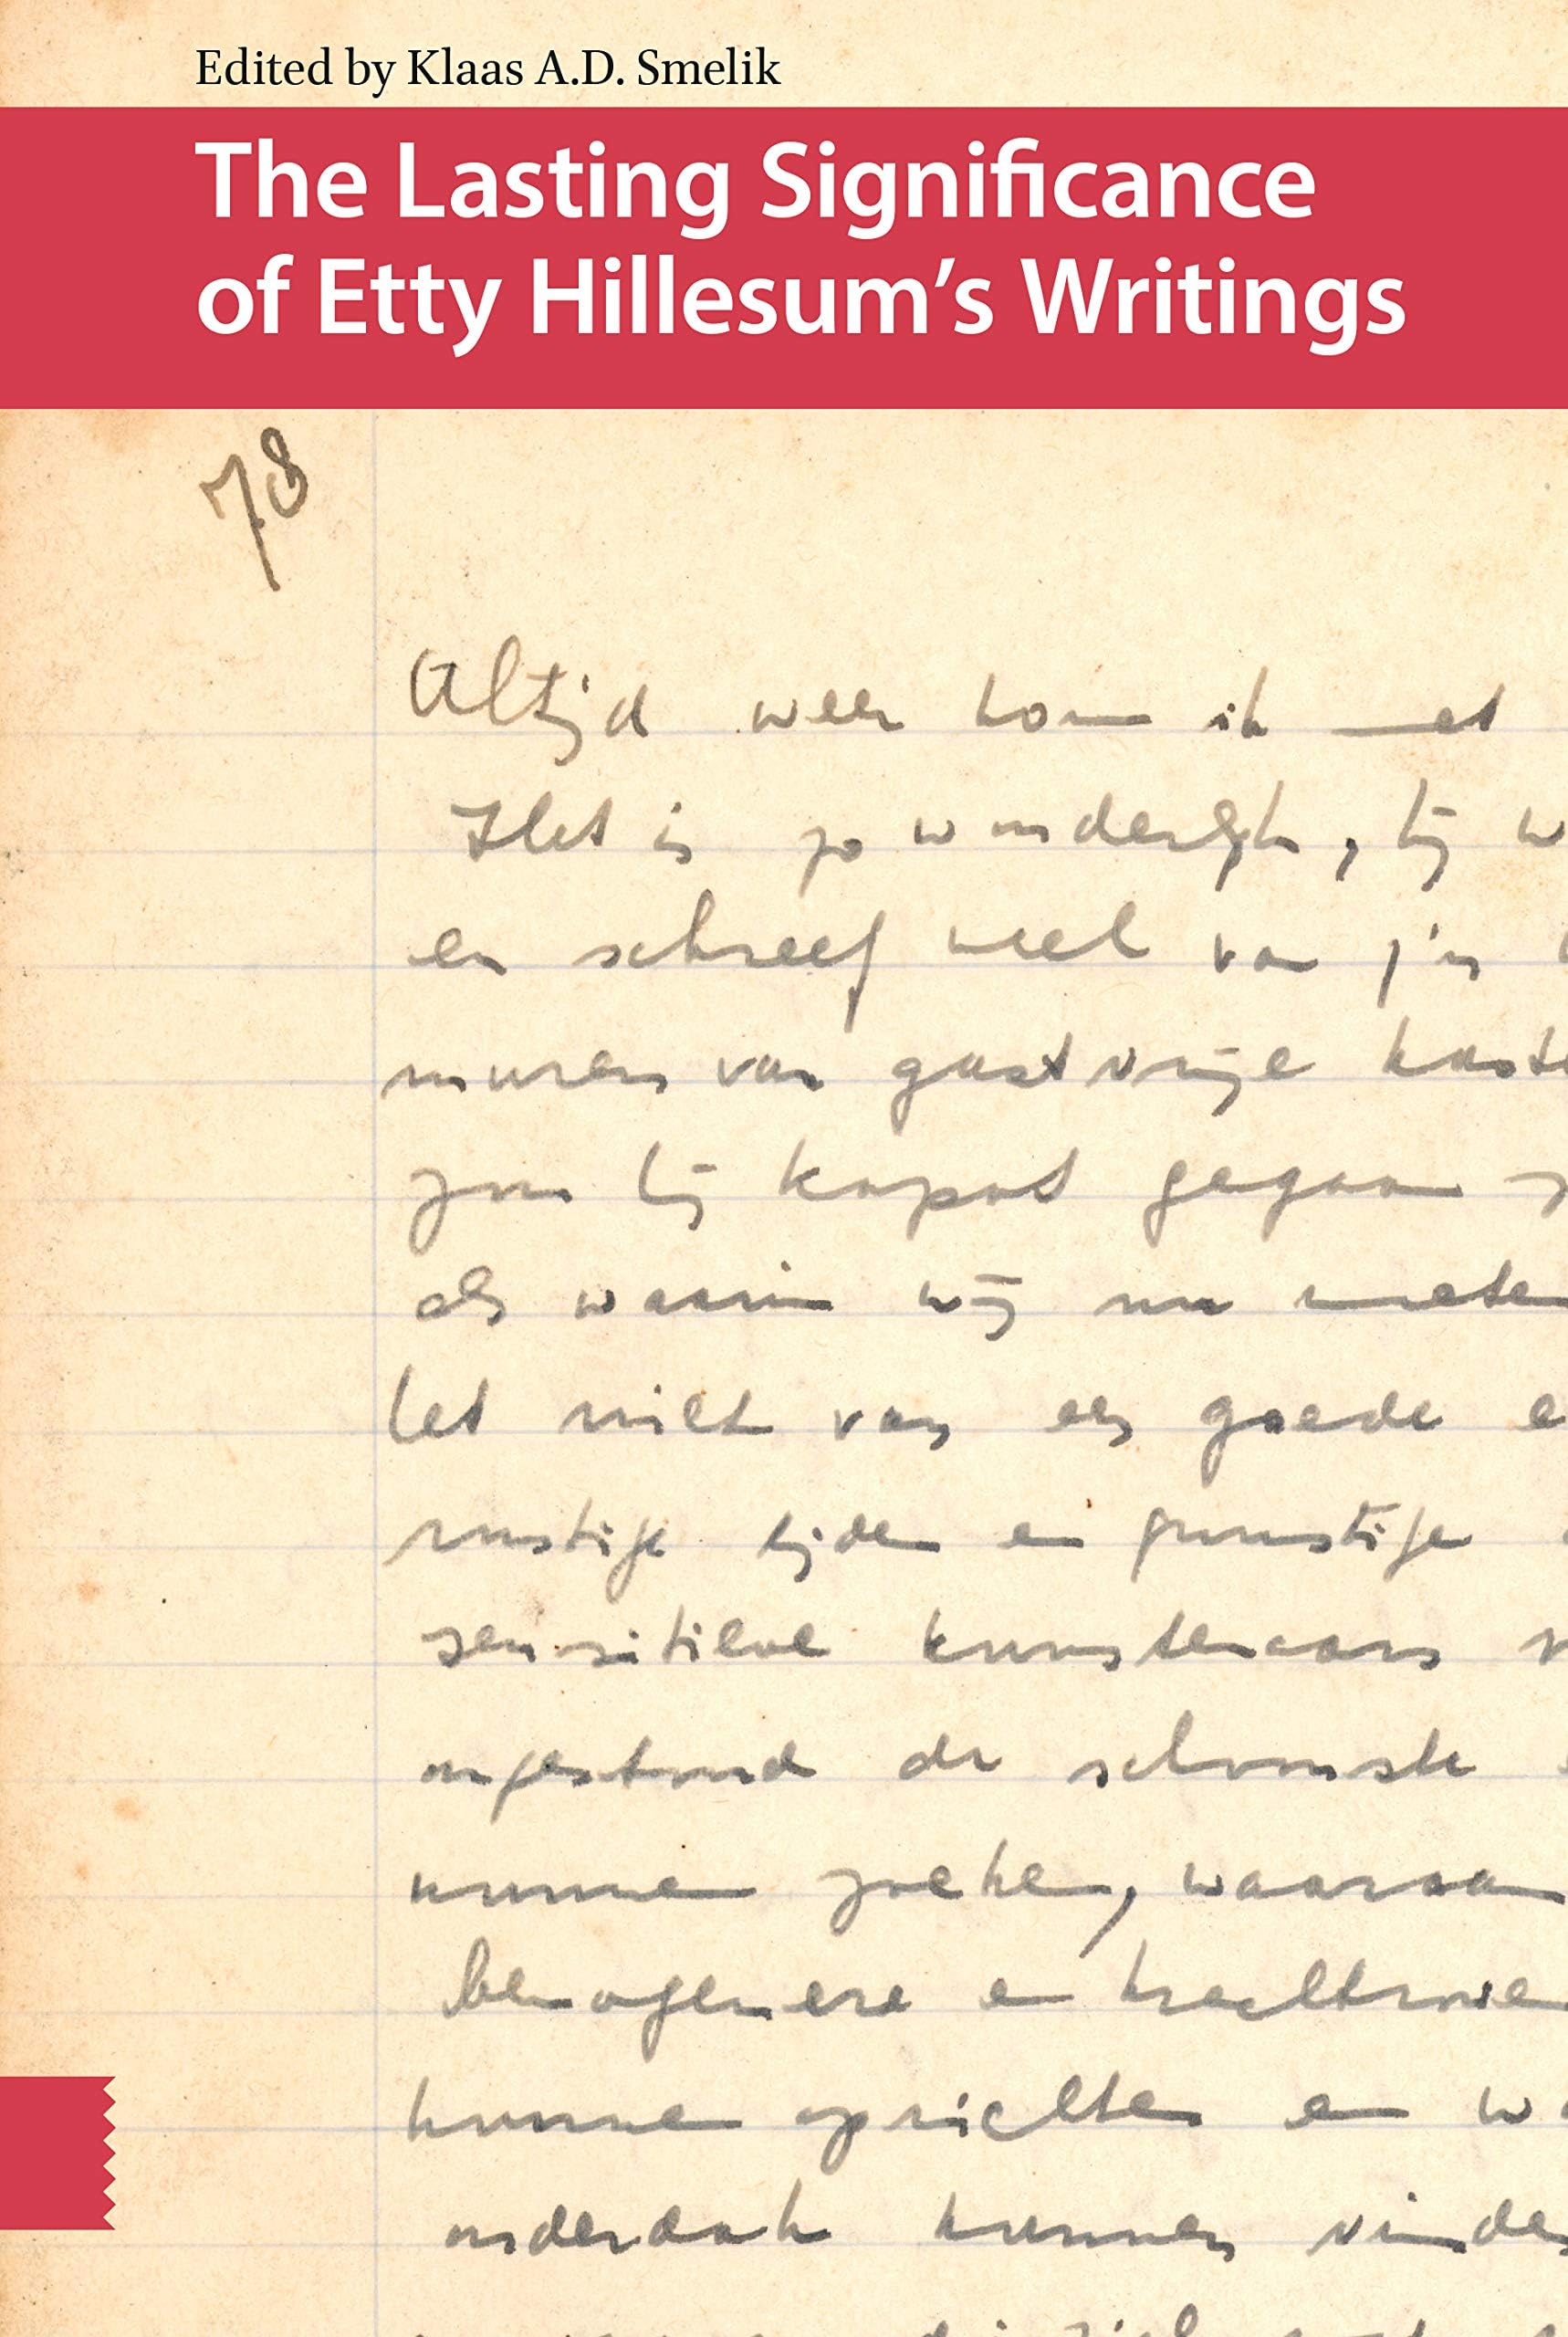 Edited by Klaas A.D. Smelik
The Lasting Significance
of Etty Hillesum's Writings
78
Altijd weer kom ik met
Het is zo wonderlijk, hij w
en schreef veel van z'n
muren van gastvrije kaste
zou hij kapot gegaan z
als waarin wij nu moeten
het niet van een goede e
rustige tijden en gunstige
sensitieve kunstenaars
ongestoord de schoonste
kunnen zoeken, waaraan
bewogenere en
kunnen oprichten en wa
onderdak kunnen vinden